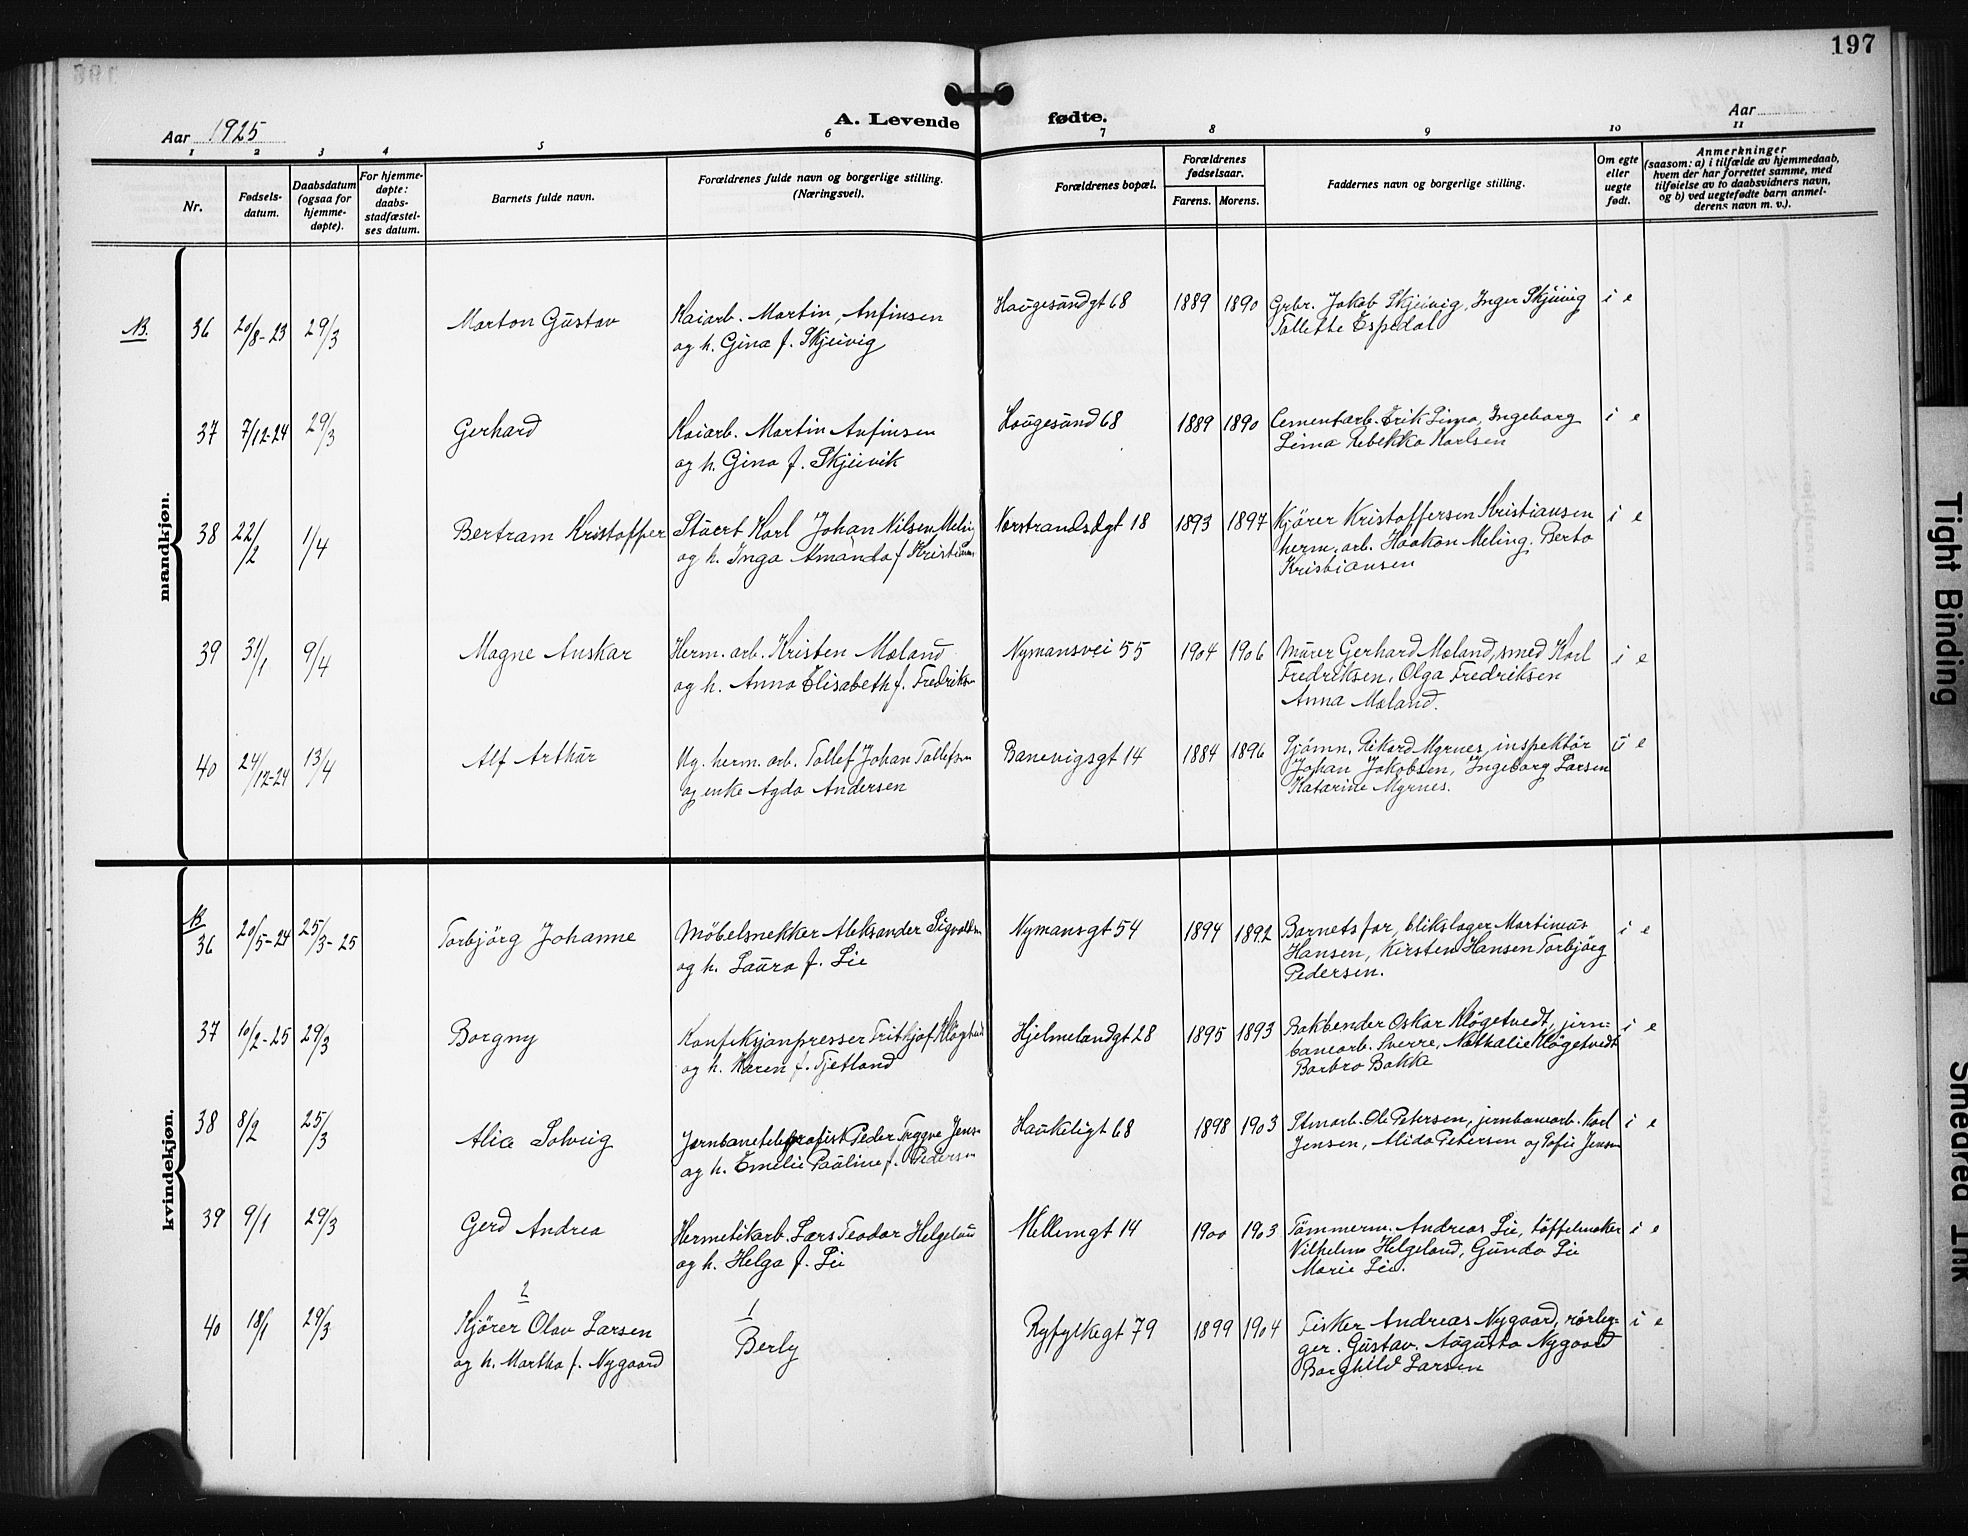 197
Aar 1925
A. Levende fødte.
Aar
1 2 3 4 5 6 7 8 9 10 11
Nr.
Fødsels-
datum.
Daabsdatum
(ogsaa for
hjemme-
døpte).
For hjemme-
døpte:
daabs-
stadfæstel-
ses datum.
Barnets fulde navn.
Forældrenes fulde navn og borgerlige stilling.
(Næringsvei).
Forældrenes bopæl.
Forældrenes
fødselsaar.
Farens. Morens.
Faddernes navn og borgerlige stilling.
Om egte
eller
uegte
født.
Anmerkninger
(saasom: a) i tilfælde av hjemmedaab,
hvem der har forrettet samme, med
tilføielse av to daabsvidners navn,
og b) ved uegtefødte barn anmel-
derens navn m. v.).
mandkjøn.
N. 36 20/8-23 29/3 Marton Gustav Kaiarb. Martin Anfinsen Haugesundgt 68 1889 1890 Grbr. Jakob Skjeivig, Inger Skjeivig i e
og h. Gina f. Skjeivig Tallette Espedal
37 7/12-24 29/3 Gerhard Kaiarb. Martin Anfinsen Haugesund 68 1889 1890 Cementarb. Erik Lima, Ingeborg i e
og h. Gina f. Skjeivik Lima Rebekka Karlsen
38 22/2 1/4 Bertram Kristoffer Stuert Karl Johan Nilsen Meling Vorstrandsdgt 18 1893 1897 Kjører Kristoffersen Kristiansen i e
og h. Inga Amanda f. Kristians herm. arb. Haakon Meling. Berta
Kristiansen
39 31/1 9/4 Magne Anskar Herm. arb. Kristen Mæland Nymansvei 55 1904 1906 Murer Gerhard Mæland, smed Karl i e
og h. Anna Elisabeth f. Fredriksen Fredriksen, Olga Fredriksen
Anna Mæland.
40 24/12-24 13/4 Alf Arthur Ug. herm. arb. Tollef Johan Tollefsen Banevigsgt 14 1884 1896 Sjømn. Rikard Myrnes, inspektør u e
og enke Agda Andersen Johan Jakobsen, Ingeborg Larsen
Katarine Myrnes.
kvindekjøn.
N. 36 20/5-24 25/3-25 Torbjørg Johanne Møbelsnekker Aleksander Sigvaldsen Nymansgt 54 1894 1892 Barnets far, blikslager Martinius i e
og h. Laura f. Lie Hansen, Kirsten Hansen Torbjørg
Pedersen.
37 10/2-25 29/3 Borgny Konfeksjonpresser Fritkjof Kløgetvedt Hjelmelandgt 28 1895 1893 Bokbender Oskar Kløgetvedt, jern- i e
og h. Karen f. Tjetland banearb. Sverre, Nathalie Kløgetvedt
Borbro Bakke
38 8/2 25/3 Alice Solveig Jernbanetelegrafist Peder Trygve Jensen Haukeligt 68 1898 1903 Stenarb. Ole Petersen, jernbanearb. Karl i e
og h. Emelie Pauline f. Pedersen Jensen, Alida Petersen og Sofie Jensen
39 9/1 29/3 Gerd Andrea Hermetikarb. Lars Teodor Helgeland Mellemgt 14 1900 1903 Tømmerm. Andreas Lie, tøffelmaker i e
og h. Helga f. Lie Vilhelm Helgeland, Gunda Lie
Marie Lie.
2 1
40 18/1 29/3 Kjører Olav Larsen Berly Ryfylkegt 79 1899 1904 Fisker Andreas Nygaard, rørleg- i e
og h. Martha f. Nygaard ger. Gustav. Augusta Nygaard
Borghild Larsen
Tight Binding
Smeared Ink